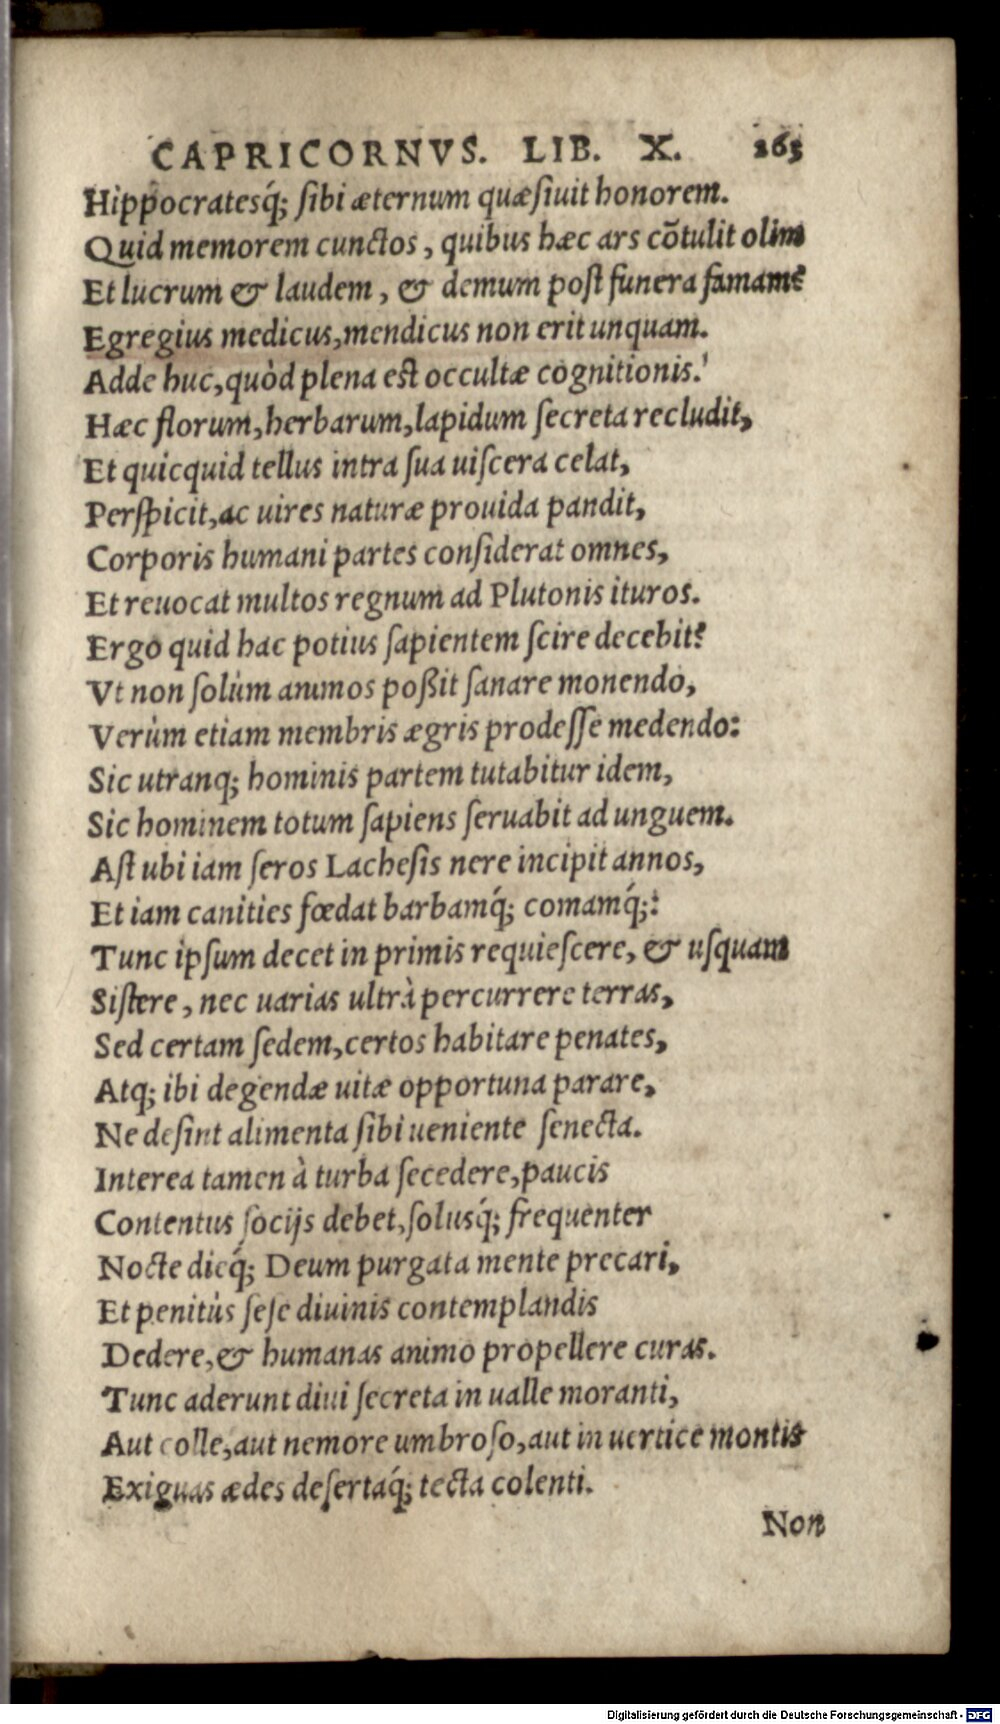 CAPRICORNVS. LIB. X. 263
Hippocratesq́; ſibi æternum quæſiuit honorem.
Quid memorem cunctos, quibus hæc ars cõtulit olim
Et lucrum & laudem, & demum poſt funera famam?
Egregius medicus, mendicus non erit unquam.
Adde huc, quòd plena est occultæ cognitionis.
Hæc florum, herbarum, lapidum ſecreta recludit,
Et quicquid tellus intra ſua uiſcera celat,
Perſpicit, ac uires naturæ prouida pandit,
Corporis humani partes conſiderat omnes,
Et reuocat multos regnum ad Plutonis ituros.
Ergo quid hac potius ſapientem ſcire decebit?
Vt non ſolùm animos poßit ſanare monendo,
Verùm etiam membris ægris prodeſſe medendo:
Sic utranq; hominis partem tutabitur idem,
Sic hominem totum ſapiens ſeruabit ad unguem.
Aſt ubi iam ſeros Lacheſis nere incipit annos,
Et iam canities fœdat barbamq́; comamq́;:
Tunc ipſum decet in primis requieſcere, & uſquam
Siſtere, nec uarias ultrà percurrere terras,
Sed certam ſedem, certos habitare penates,
Atq; ibi degendæ uitæ opportuna parare,
Ne deſint alimenta ſibi ueniente ſenecta.
Interea tamen à turba ſecedere, paucis
Contentus ſocijs debet, ſolusq́; frequenter
Nocte dieq́; Deum purgata mente precari,
Et penitùs ſeſe diuinis contemplandis
Dedere, & humanas animo propellere curas.
Tunc aderunt diui ſecreta in ualle moranti,
Aut colle, aut nemore umbroſo, aut in uertice montis
Exiguas ædes deſertaq́; tecta colenti.
Non
Digitalisierung gefördert durch die Deutsche Forschungsgemeinschaft - DFG